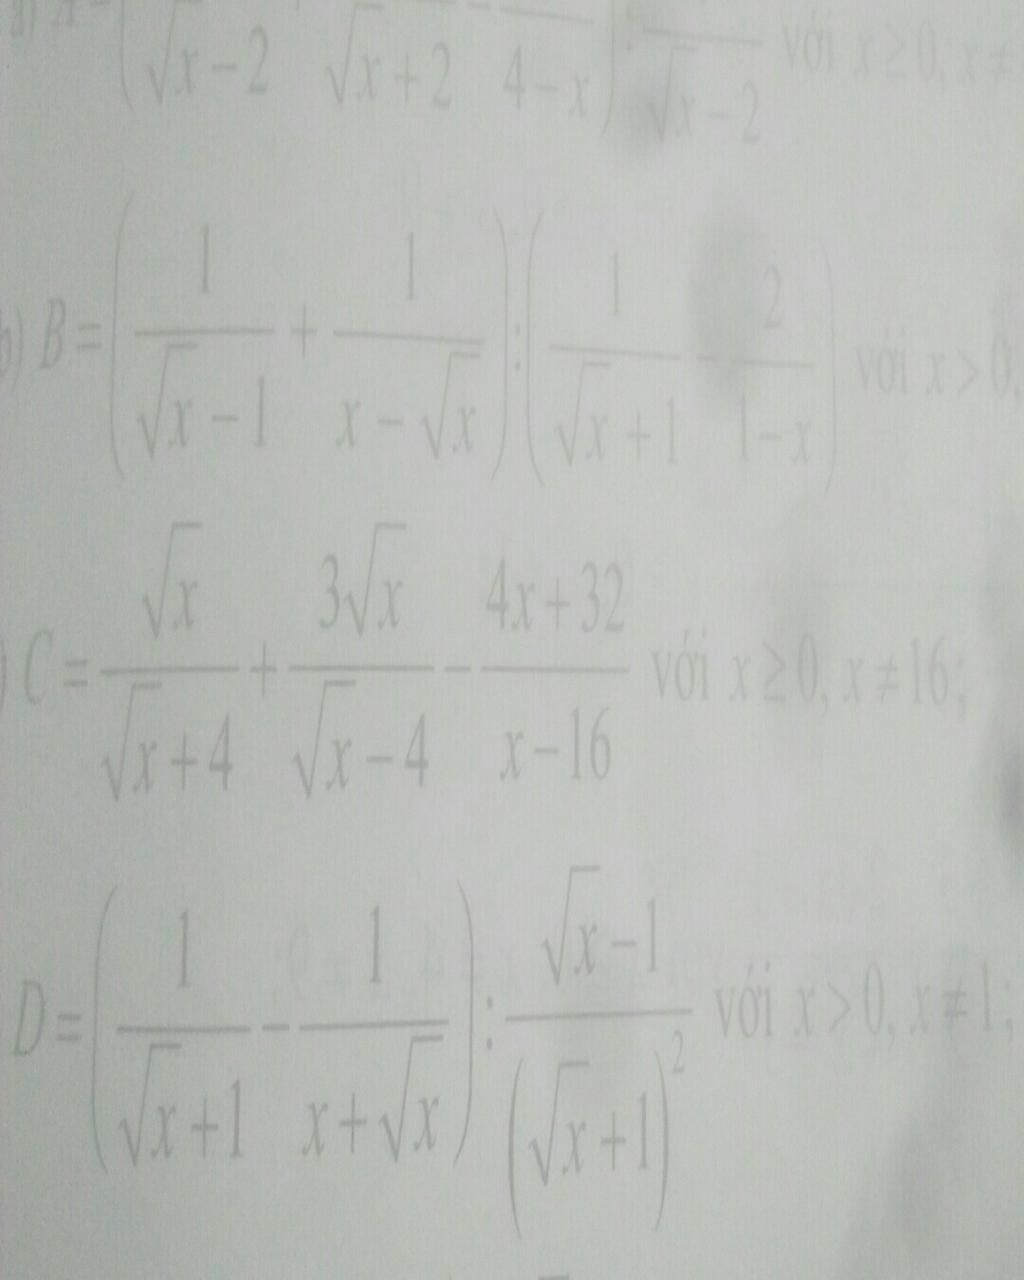 a) (√x-2 √x+2 4-x) : √x-2 với x ≥ 0, x ≠
b) B = (1/(√x-1) + 1/(x-√x)) : (1/(√x+1) - 2/(1-x)) với x > 0,
) C = √x/(√x+4) + 3√x/(√x-4) - (4x+32)/(x-16) với x ≥ 0, x ≠ 16;
D = (1/(√x+1) - 1/(x+√x)) : (√x-1)/(√x+1)² với x > 0, x ≠ 1;